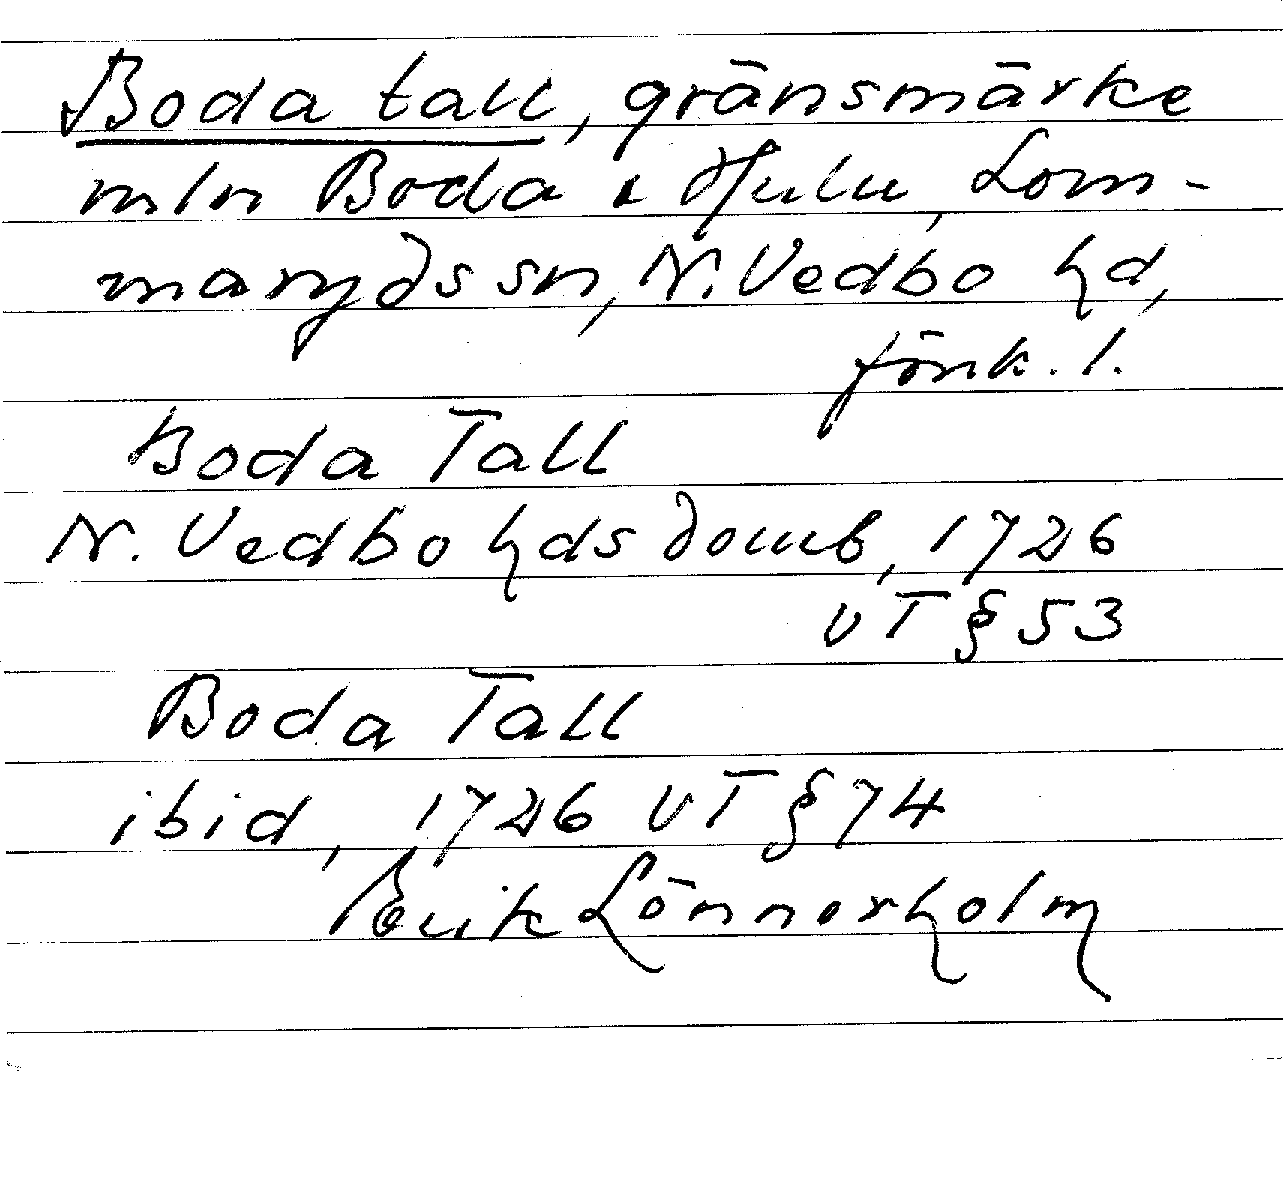 Boda tall, gränsmärke
mln Boda & Hulu, Lom-
maryds sn, N. Vedbo hd,
Jönk. l.
Boda Tall
N. Vedbo hds domb, 1726
vT § 53
Boda Tall
ibid, 1726 vT § 74
Erik Lönnerholm